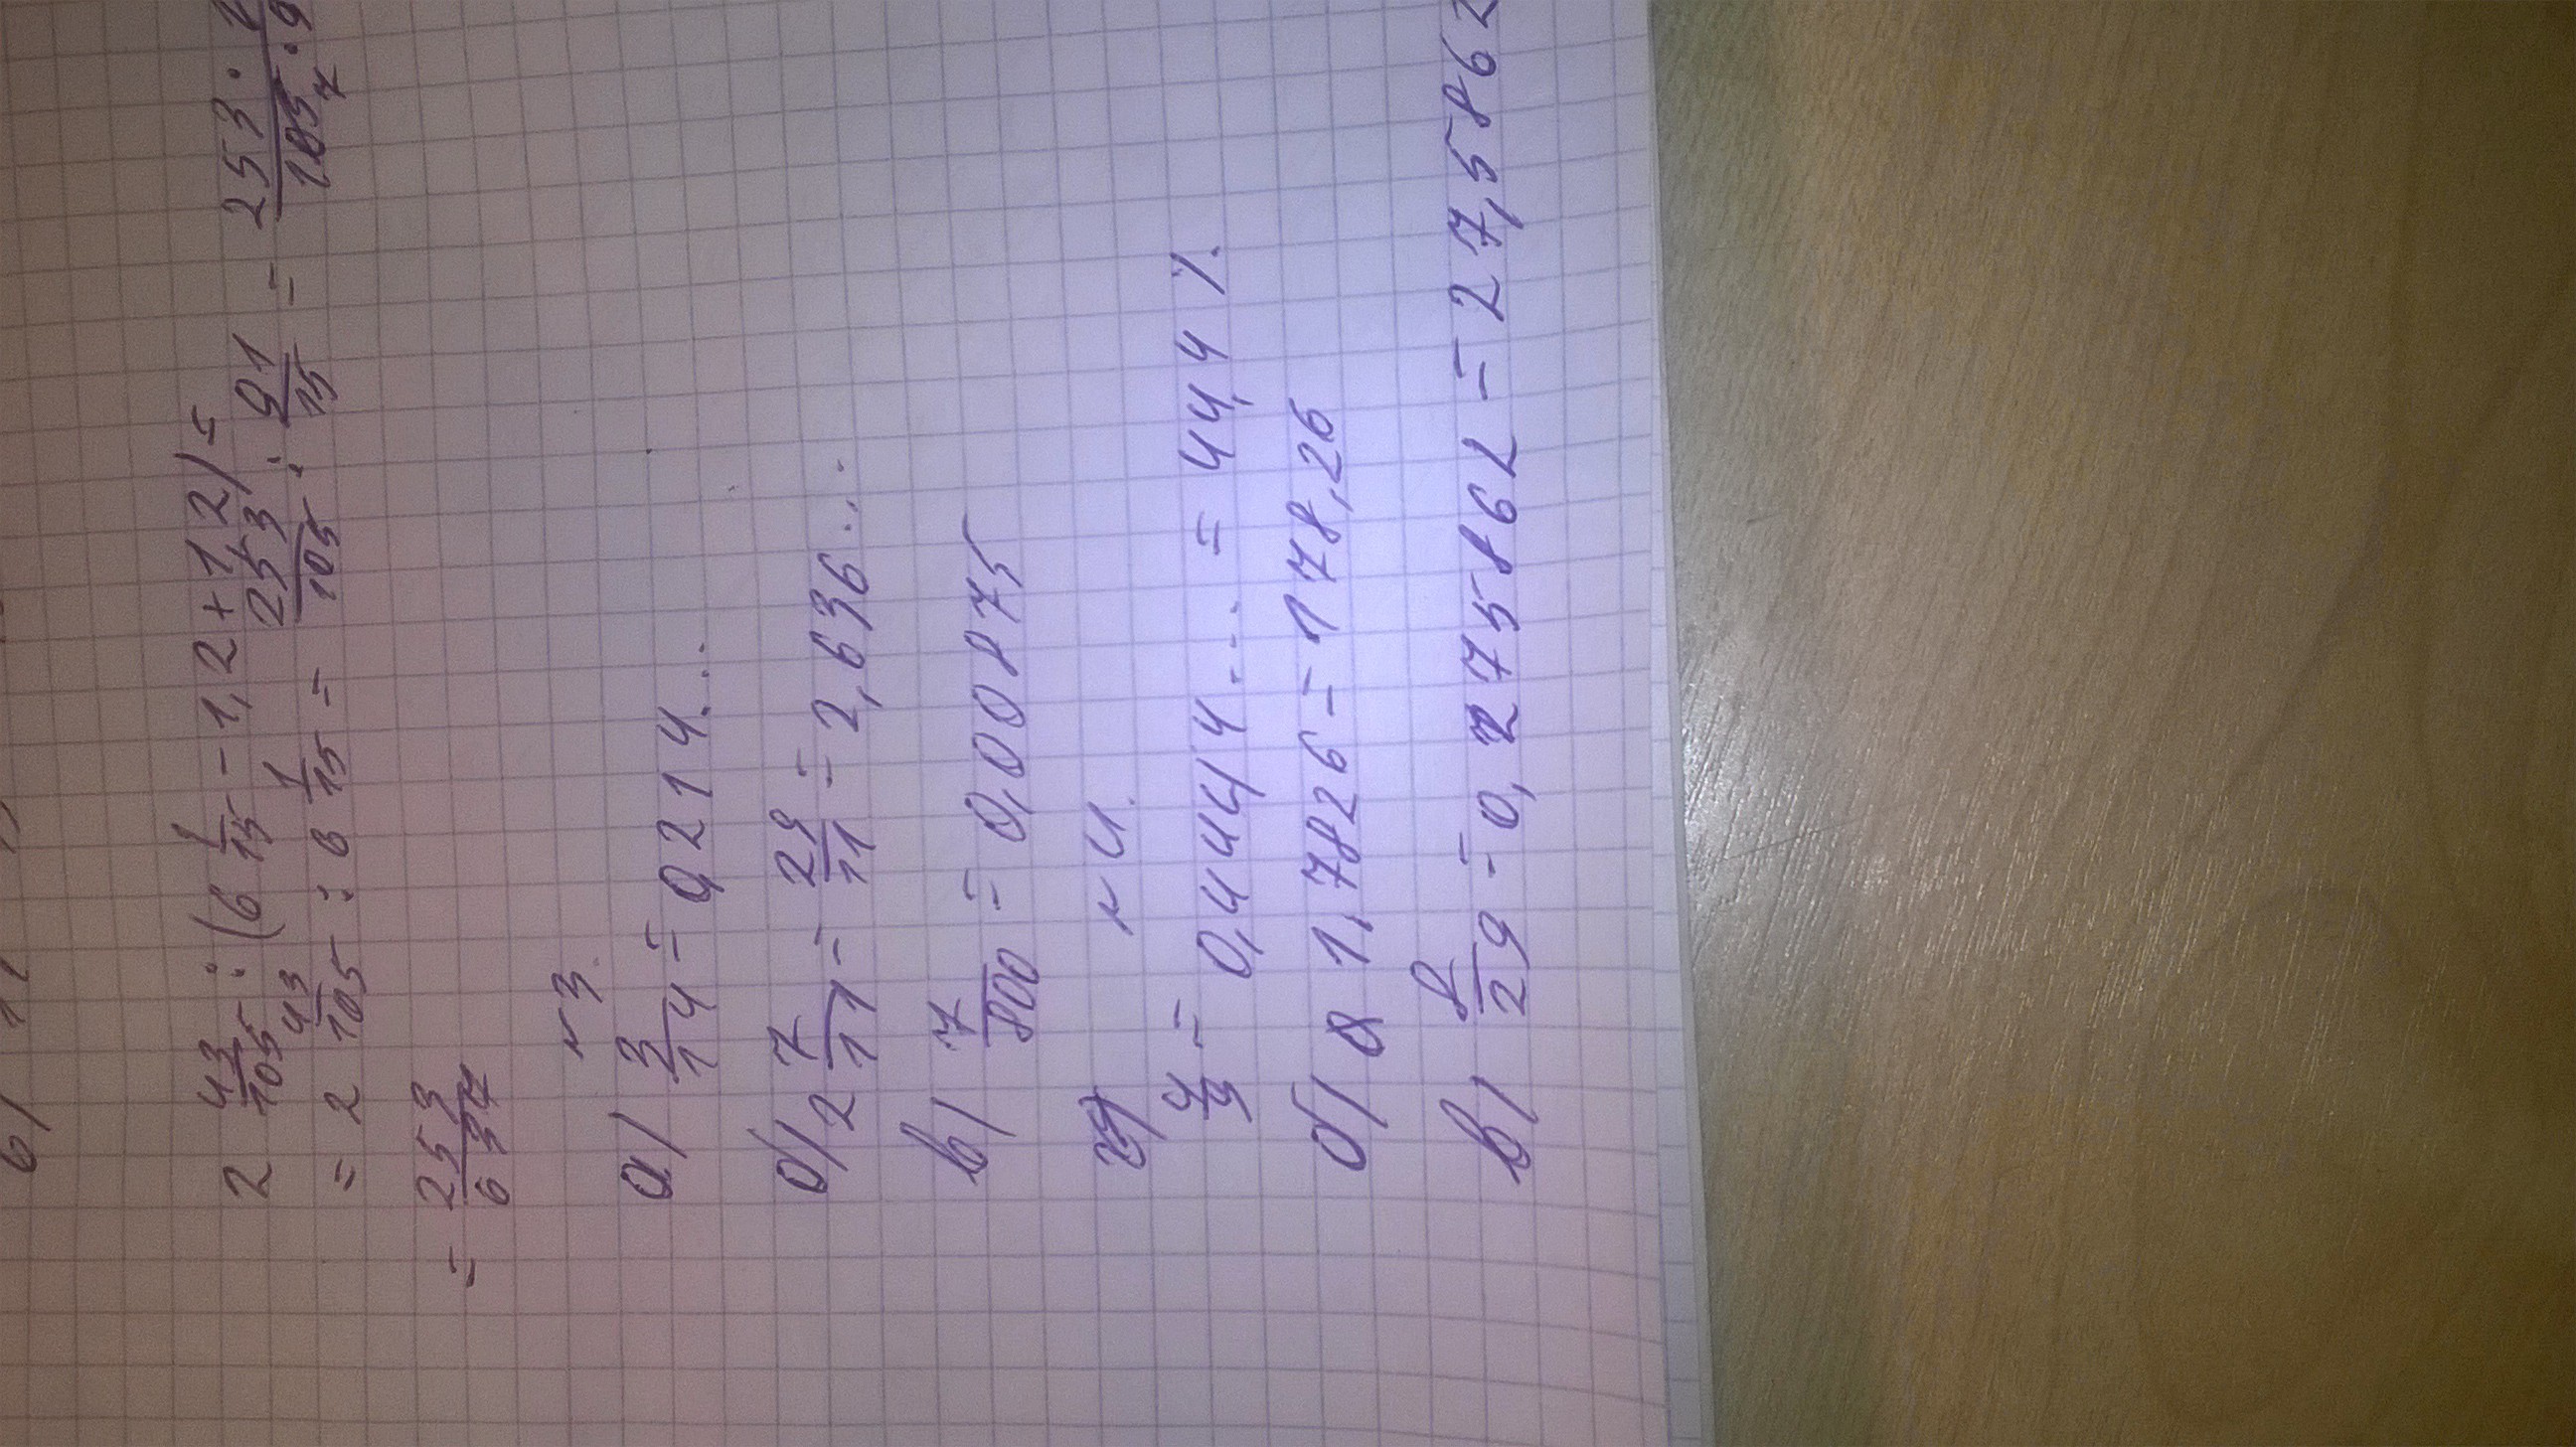 2 43/105 : (6 1/15 - 1,2 + 1,2) =
= 2 43/105 : 6 1/15 = 253/105 : 91/15 = 253 ·
= 253/637
№3.
а) 3/14 = 0,214...
б) 2 7/11 = 29/11 = 2,636...
в) 7/800 = 0,00875
№4.
4/9 = 0,4444... = 44,4 %.
б) 1,7826 = 178,26
в) 8/29 = 0,275862 = 27,5862